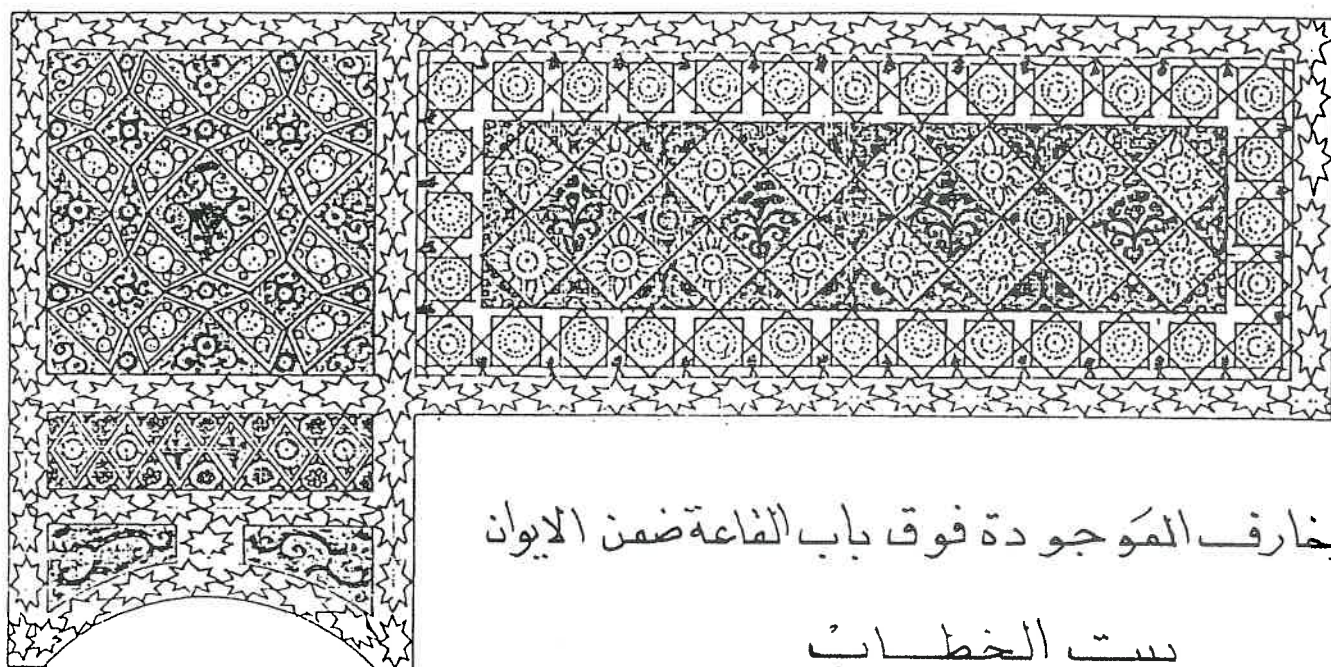 خارف المَوجودة فوق باب القاعة ضمن الايوان
بيت الخطاب